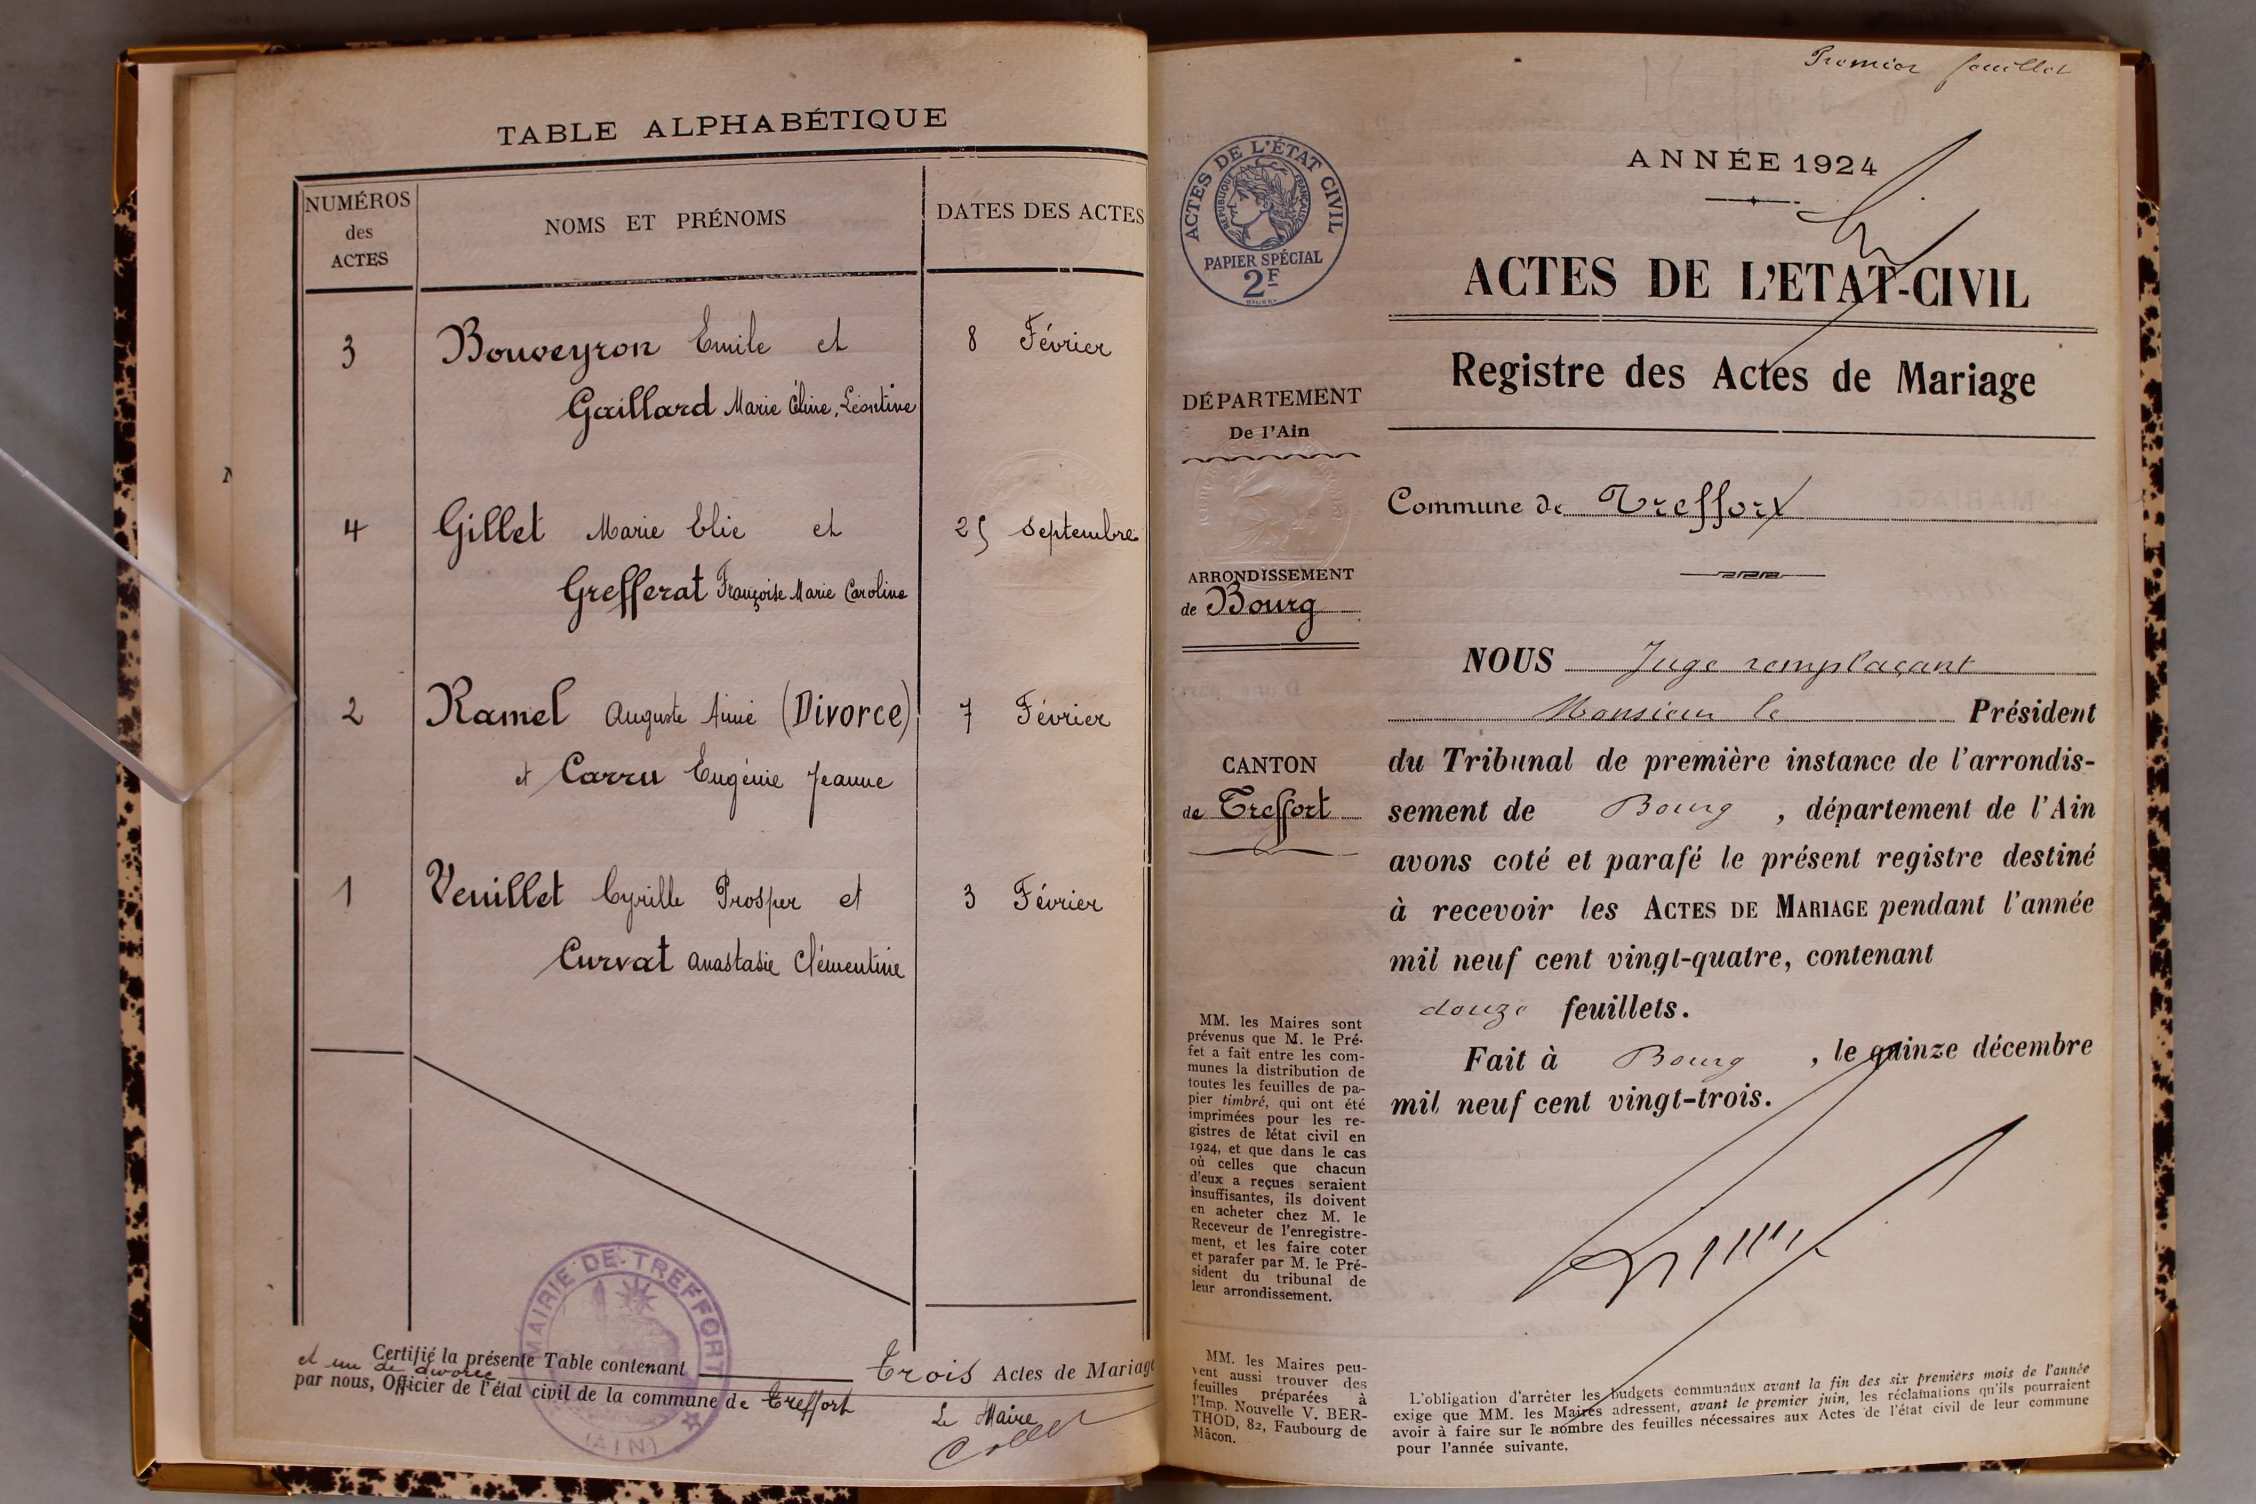 TABLE ALPHABÉTIQUE
NUMÉROS
des
ACTES
NOMS ET PRÉNOMS
DATES DES ACTES
3 Bouveyron Emile et 8 Février
Gaillard Marie Céline, Léontine
4 Gillet Marie Elie et 25 Septembre
Grefferat Françoise Marie Caroline
2 Ramel Auguste Aimé (Divorce) 7 Février
et Carru Eugénie Jeanne
1 Veuillet Cyrille Prosper et 3 Février
Curvat Anastasie Clémentine
MAIRIE DE TREFFORT
(AIN)
Certifié la présente Table contenant Trois Actes de Mariage
et un de divorce
par nous, Officier de l'état civil de la commune de Treffort
Le Maire
Collet
Premier feuillet
ACTES DE L'ÉTAT CIVIL
RÉPUBLIQUE FRANÇAISE
PAPIER SPÉCIAL
2F
DÉPARTEMENT
De l'Ain
ARRONDISSEMENT
de Bourg
CANTON
de Treffort
MM. les Maires sont
prévenus que M. le Pré-
fet a fait entre les com-
munes la distribution de
toutes les feuilles de pa-
pier timbré, qui ont été
imprimées pour les re-
gistres de l'état civil en
1924, et que dans le cas
où celles que chacun
d'eux a reçues seraient
insuffisantes, ils doivent
en acheter chez M. le
Receveur de l'enregistre-
ment, et les faire coter
et parafer par M. le Pré-
sident du tribunal de
leur arrondissement.
MM. les Maires peu-
vent aussi trouver des
feuilles préparées à
l'Imp. Nouvelle V. BER-
THOD, 82, Faubourg de
Mâcon.
ANNÉE 1924
ACTES DE L'ETAT-CIVIL
Registre des Actes de Mariage
Commune de Treffort
NOUS Juge remplaçant
Monsieur le Président
du Tribunal de première instance de l'arrondis-
sement de Bourg, département de l'Ain
avons coté et parafé le présent registre destiné
à recevoir les ACTES DE MARIAGE pendant l'année
mil neuf cent vingt-quatre, contenant
douze feuillets.
Fait à Bourg, le quinze décembre
mil neuf cent vingt-trois.
L'obligation d'arrêter les budgets communaux avant la fin des six premiers mois de l'année
exige que MM. les Maires adressent, avant le premier juin, les réclamations qu'ils pourraient
avoir à faire sur le nombre des feuilles nécessaires aux Actes de l'état civil de leur commune
pour l'année suivante.